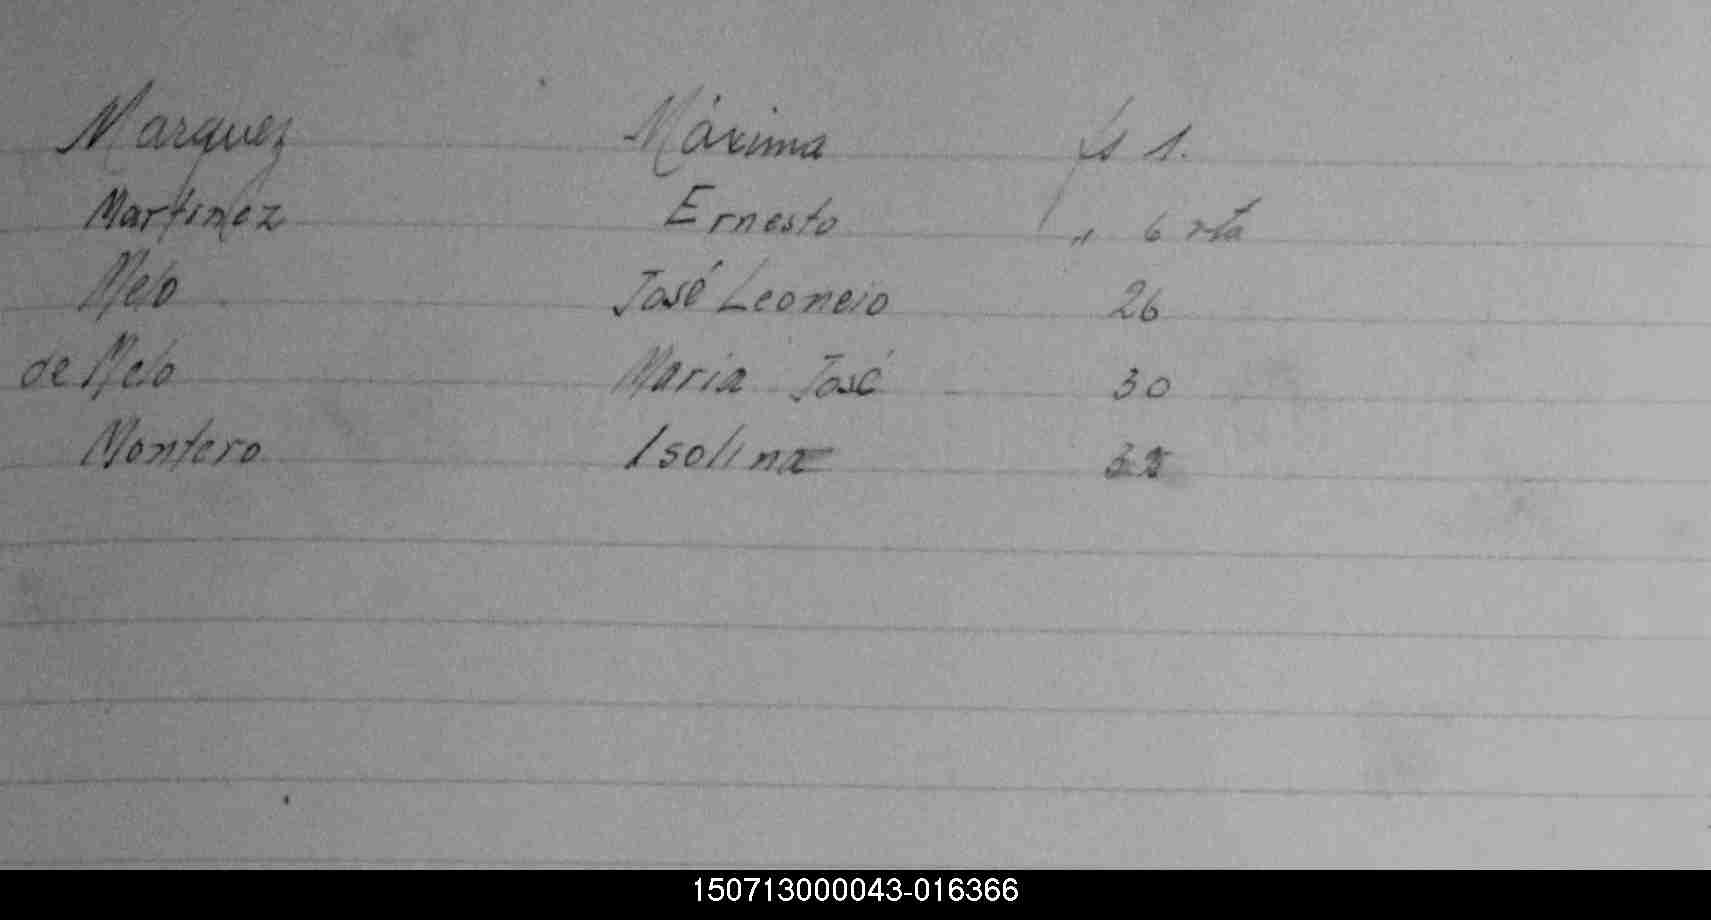 Marquez Máxima fs 1.
Martinez Ernesto " 6 vta
Melo José Leoncio 26
de Melo Maria José 30
Montero Isolina
150713000043-016366